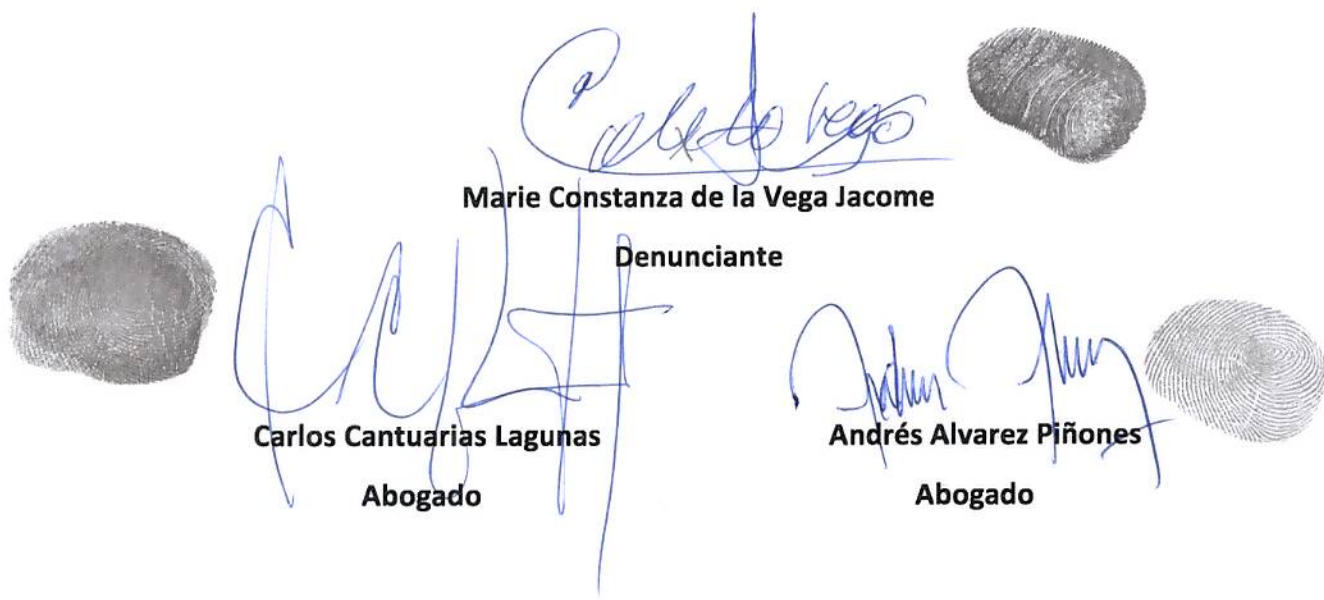 Marie Constanza de la Vega Jacome
Denunciante
Carlos Cantuarias Lagunas
Abogado
Andrés Alvarez Piñones
Abogado